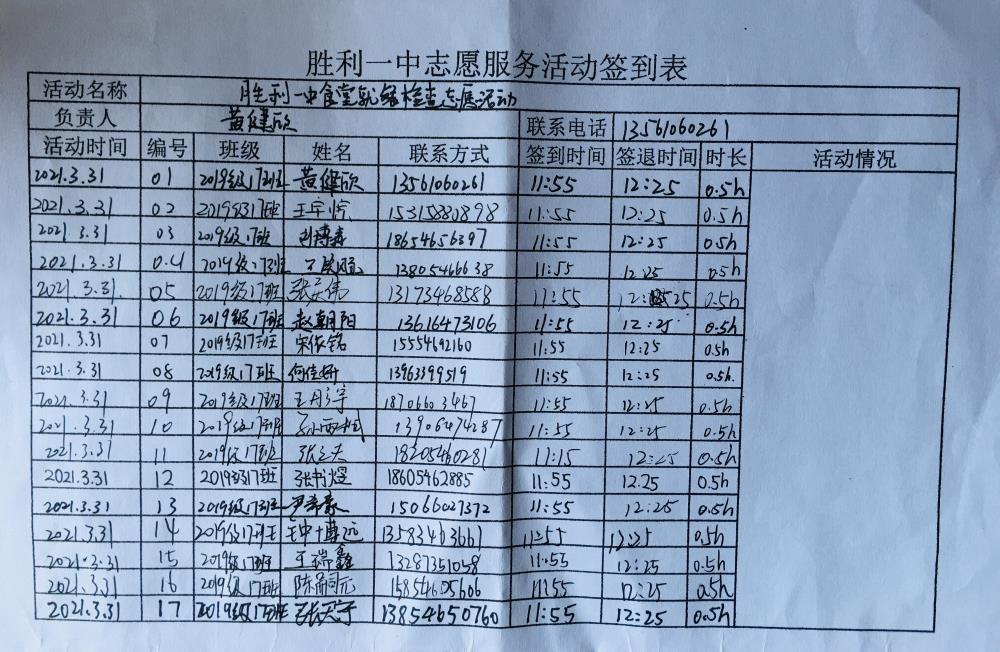 胜利一中志愿服务活动签到表
活动名称 胜利一中食堂就餐检查志愿活动
负责人 黄健欣 联系电话 13561060261
活动时间 编号 班级 姓名 联系方式 签到时间 签退时间 时长 活动情况
2021.3.31 01 2019级17班 黄健欣 13561060261 11:55 12:25 0.5h
2021.3.31 02 2019级17班 15315880898 11:55 12:25 0.5h
2021.3.31 03 2019级17班 18654656397 11:55 12:25 0.5h
2021.3.31 04 2019级17班 13805466638 11:55 12:25 0.5h
2021.3.31 05 2019级17班 张天伟 13173468588 11:55 12:25 0.5h
2021.3.31 06 2019级17班 赵朝阳 13616473106 11:55 12:25 0.5h
2021.3.31 07 2019级17班 宋依铭 15554692160 11:55 12:25 0.5h
2021.3.31 08 2019级17班 何佳妍 13963399519 11:55 12:25 0.5h.
2021.3.31 09 2019级17班 王彤宇 18706603467 11:55 12:25 0.5h
2021.3.31 10 2019级17班 13906474287 11:55 12:25 0.5h
2021.3.31 11 2019级17班 18205460281 11:15 12:25 0.5h
2021.3.31 12 2019级17班 张书煜 18605462885 11:55 12.25 0.5h
2021.3.31 13 2019级17班 尹希豪 15066027372 11:55 12:25 0.5h
2021.3.31 14 2019级17班 13583463661 11:55 12:25 0.5h
2021.3.31 15 2019级17班 王瑞鑫 13287351058 11:55 12:25 0.5h
2021.3.31 16 2019级17班 15854605606 11:55 12:25 0.5h
2021.3.31 17 2019级17班 13854650760 11:55 12:25 0.5h